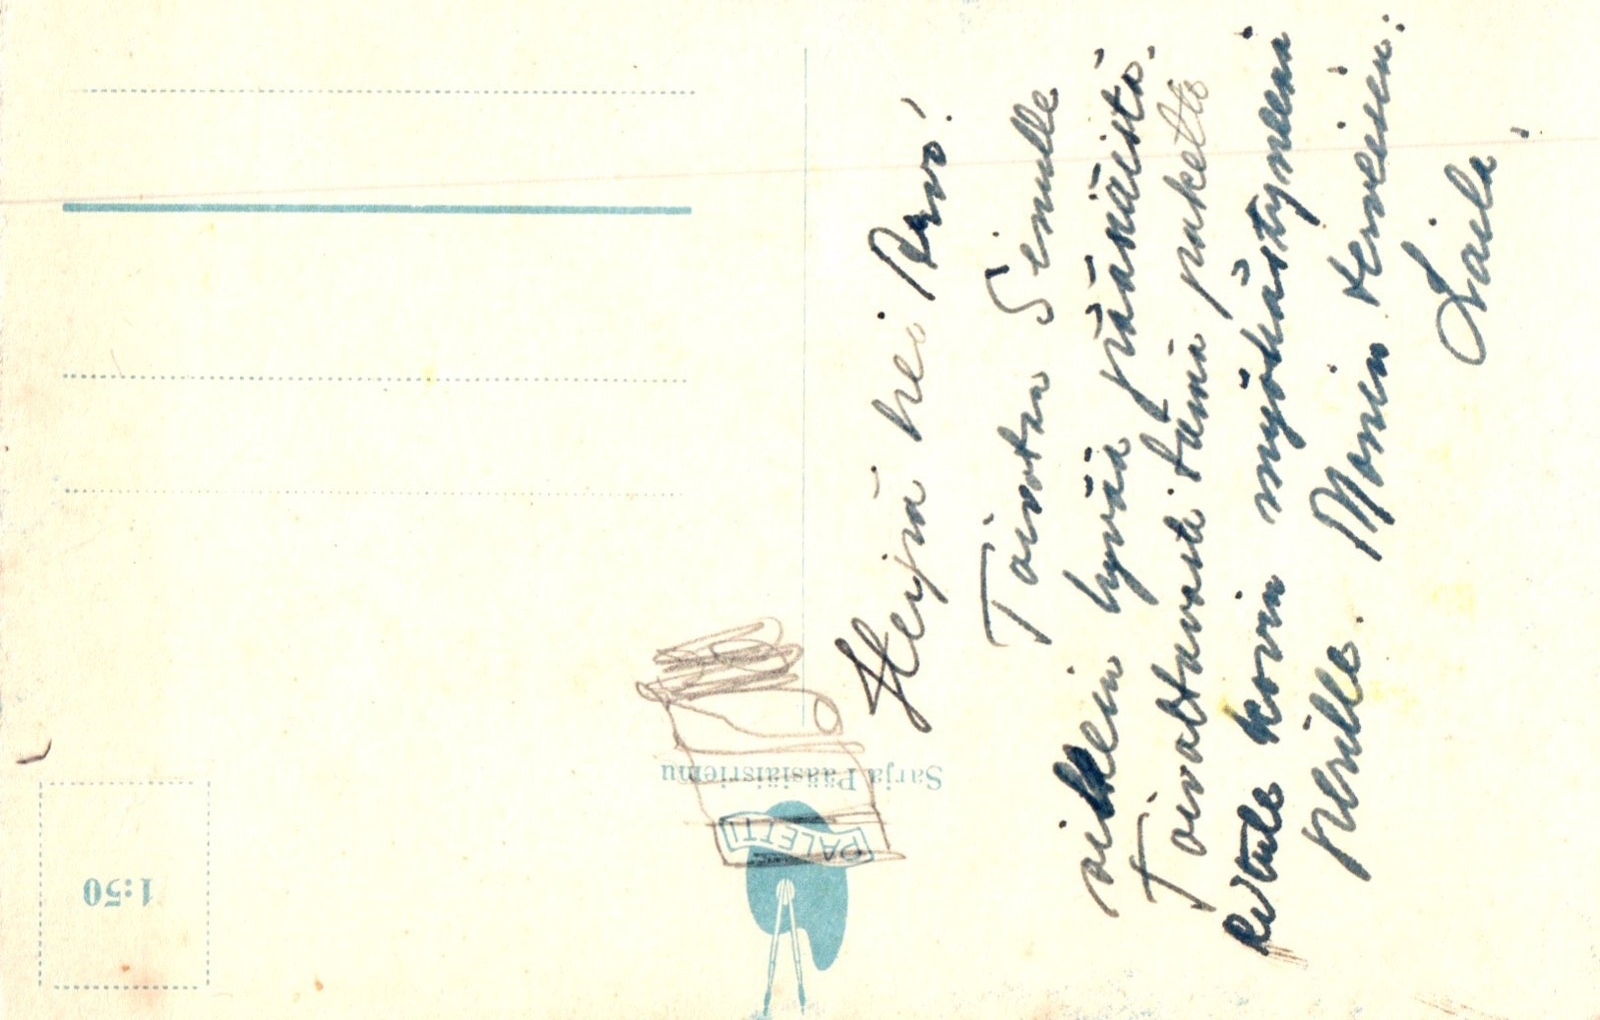 Heijä hei Arvo!
Toivotan Sinulle
oikein hyvää pääsiäistä.
Toivottavasti tämä paketti
ei tule kovin myöhästyneenä
perille. Monin terveisin:
Laila
Sarja Pääsiäisriemu
PALETTI
1:50